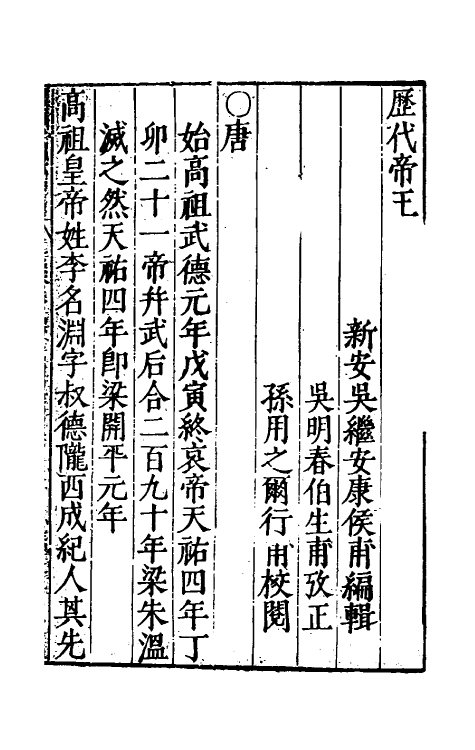 歷代帝王
新安吳繼安康侯甫編輯
吳明春伯生甫攷正
孫用之爾行甫校閱
○唐
始高祖武德元年戊寅終哀帝天祐四年丁
卯二十一帝幷武后合二百九十年梁朱溫
滅之然天祐四年卽梁開平元年
高祖皇帝姓李名淵字叔德隴西成紀人其先